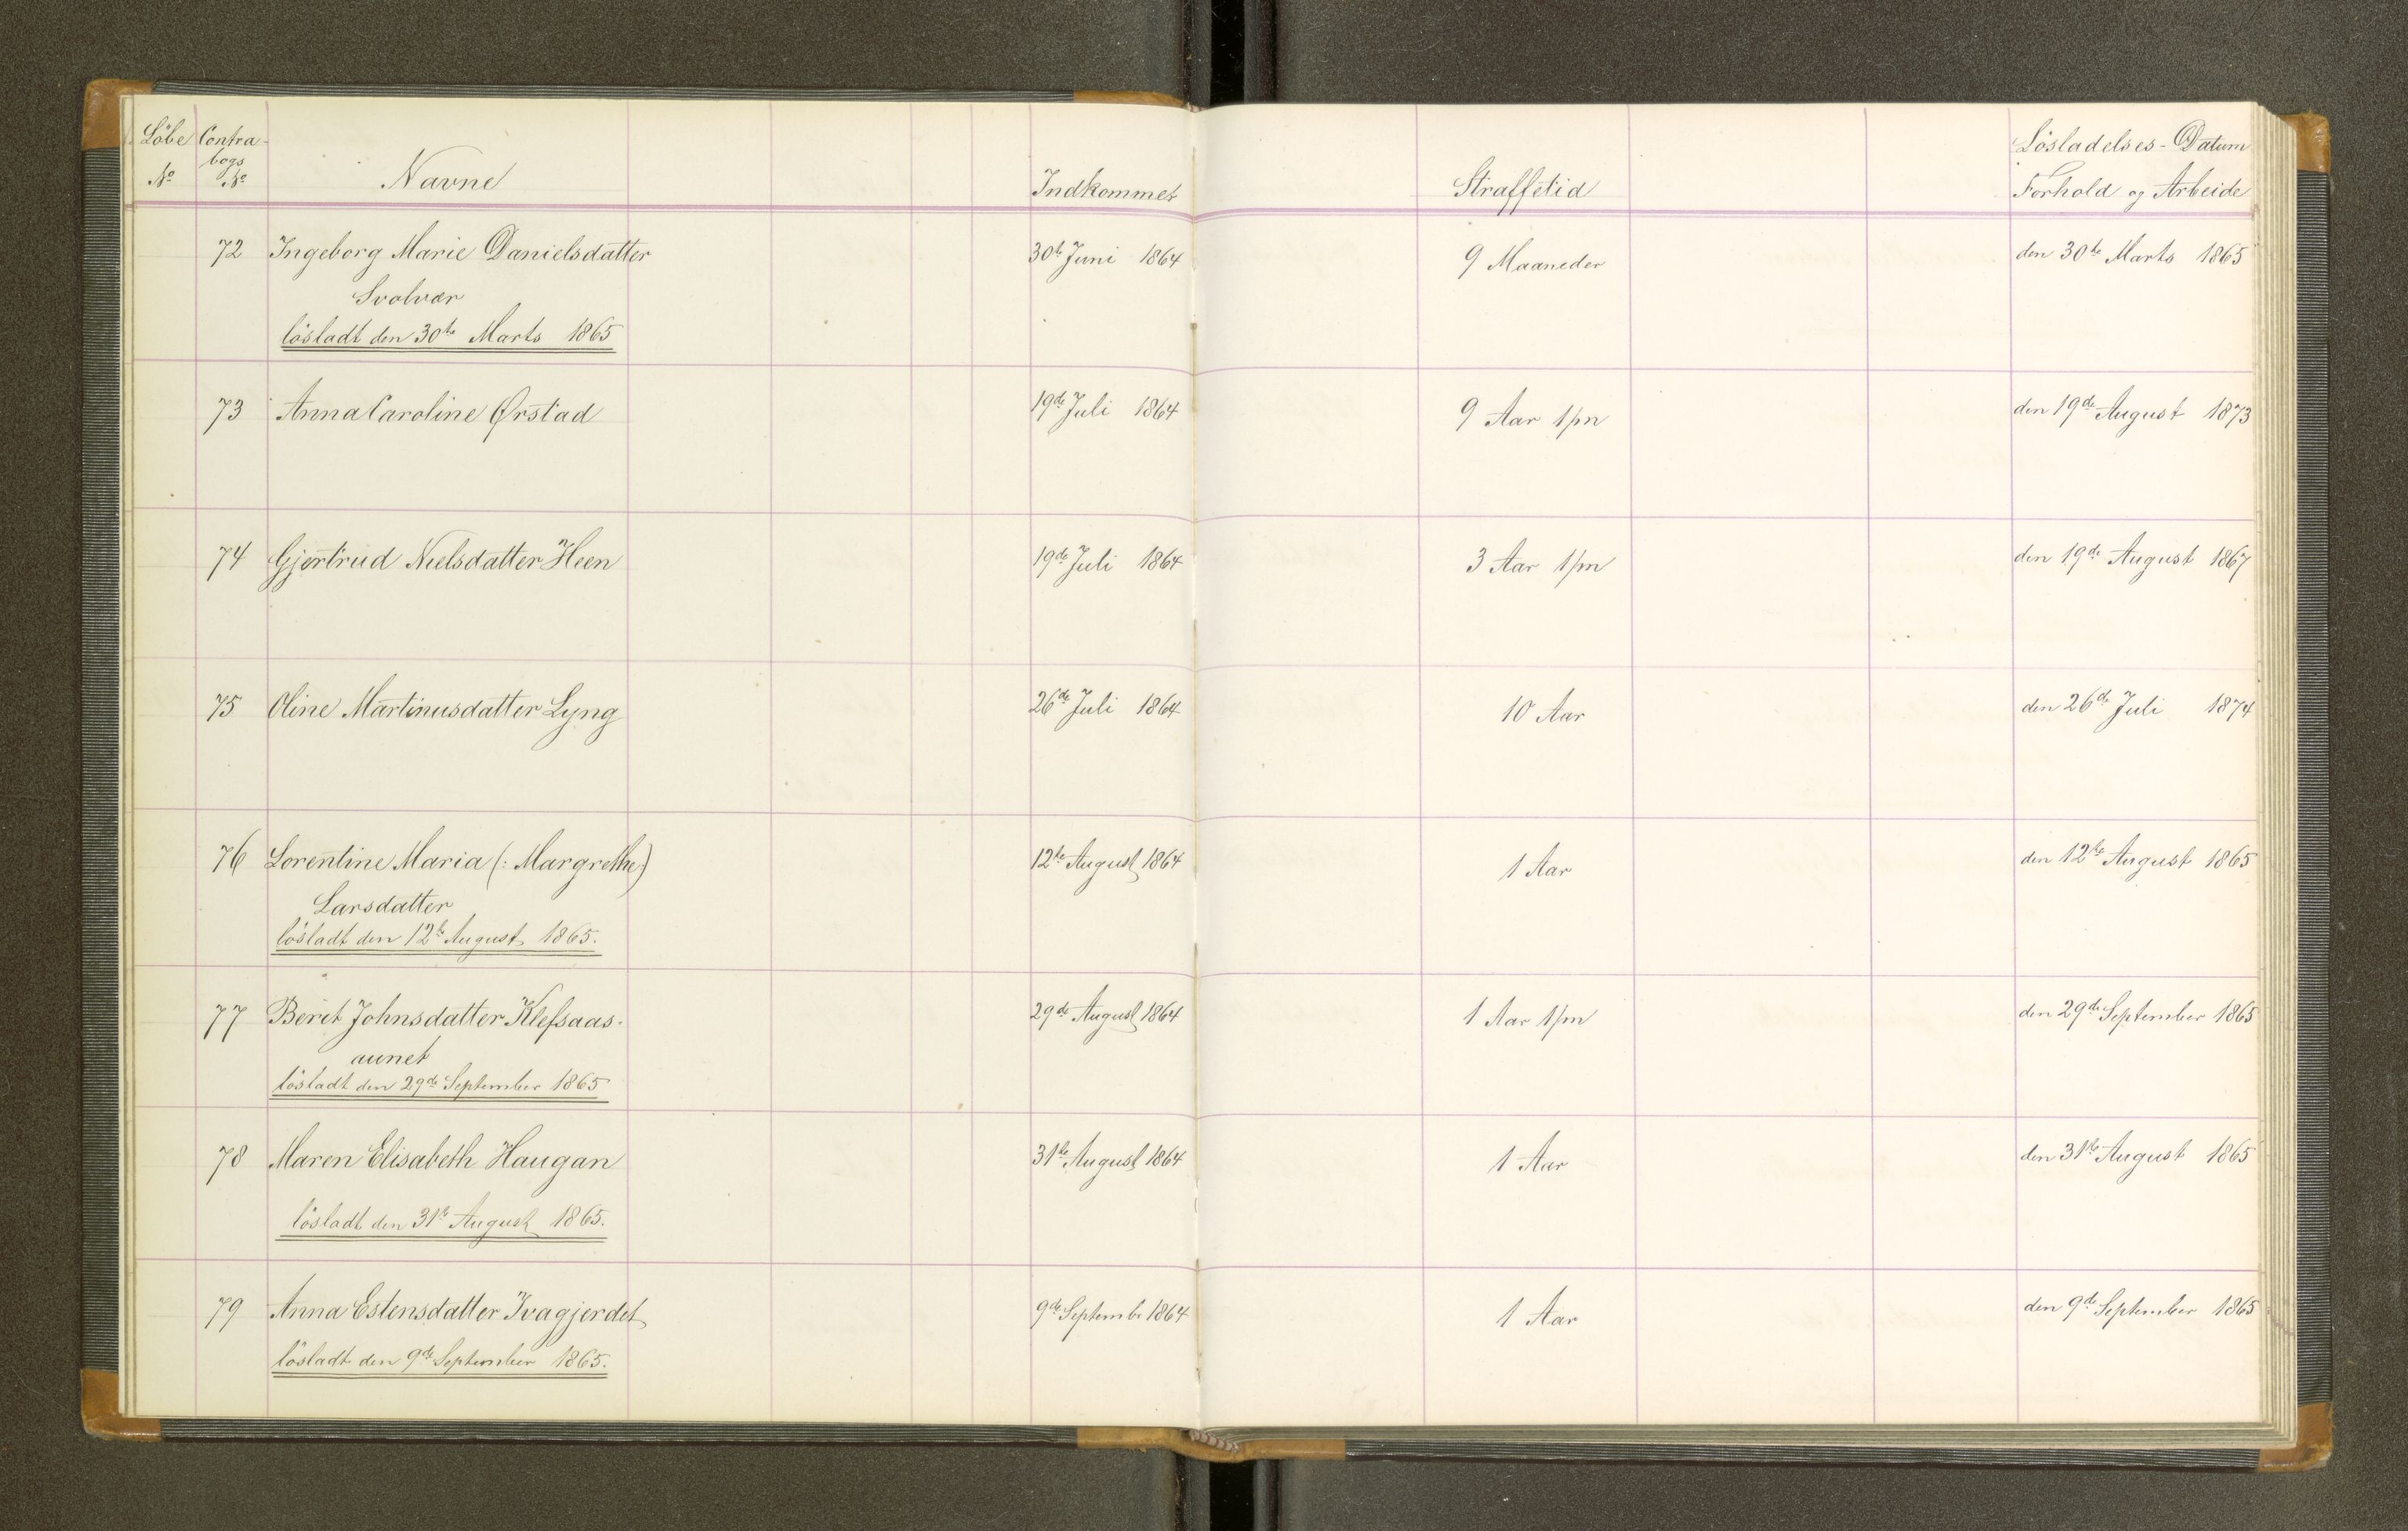 Löbe Contra- Navne Indkommet Straffetid Lösladelses-Datum
No bogs No Forhold og Arbeide
72 Ingeborg Marie Danielsdatter 30te Juni 1864 9 Maaneder den 30te Marts 1865
Svolvær
lösladt den 30te Marts 1865
73 Anna Caroline Ørstad 19de Juli 1864 9 Aar 1/m den 19de August 1873
74 Gjertrud Nielsdatter Heen 19de Juli 1864 3 Aar 1/m den 19de August 1867
75 Oline Martinusdatter Lyng 26de Juli 1864 10 Aar den 26de Juli 1874
76 Lorentine Maria (: Margrethe:) 12te August 1864 1 Aar den 12te August 1865
Larsdatter
lösladt den 12te August 1865.
77 Berit Johnsdatter Klefsaas- 29de August 1864 1 Aar 1/m den 29de September 1865
aunet
lösladt den 29de September 1865
78 Maren Elisabeth Haugan 31te August 1864 1 Aar den 31te August 1865
lösladt den 31te August 1865.
79 Anna Estensdatter Ivagjerdet 9de Septembr 1864 1 Aar den 9de September 1865
lösladt den 9de September 1865.